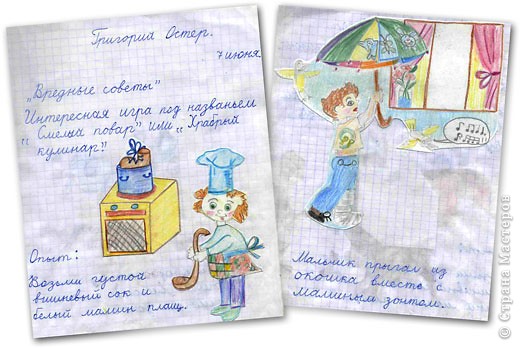 Григорий Остер.
7 июня.
„Вредные советы"
Интересная игра под названьем
„Смелый повар" или „Храбрый
кулинар!"
Опыт:
Возьми густой
вишнёвый сок и
белый мамин плащ.
Мальчик прыгал из
окошка вместе с
маминым зонтом...
© Страна Мастеров